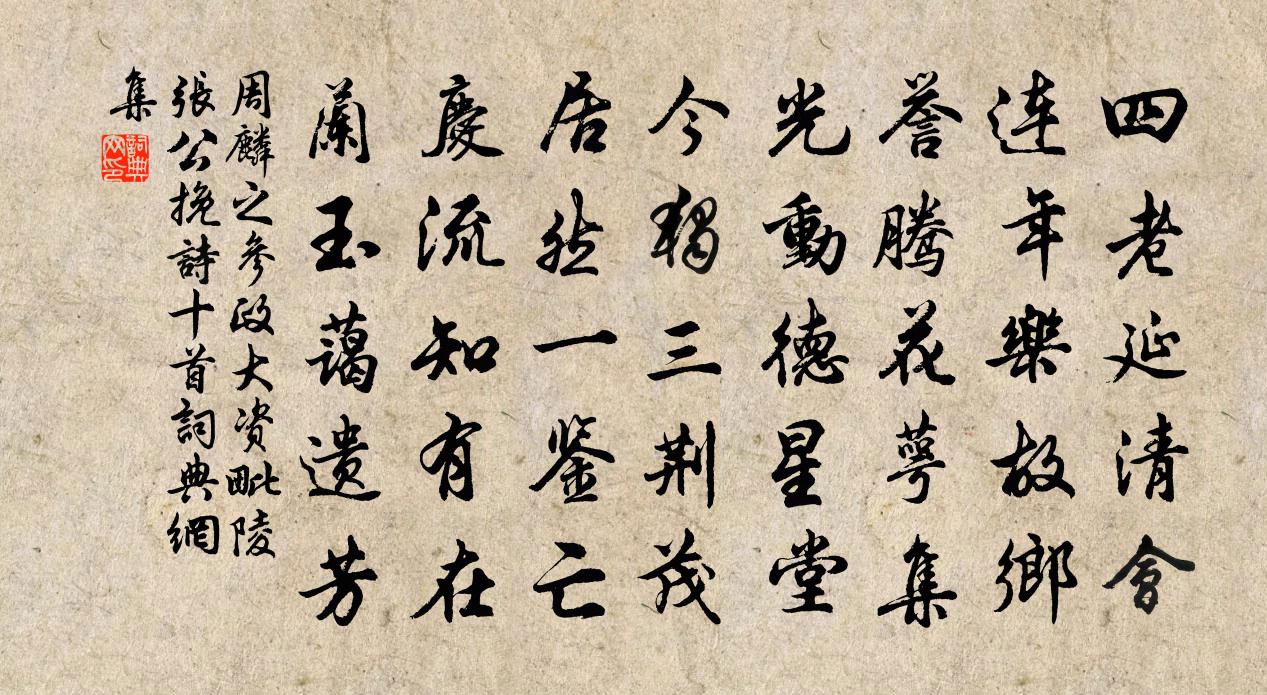 四老延清會
連年樂故鄉
譽騰花萼集
光動德星堂
今獨三荆茂
居然一鑒亡
慶流知有在
蘭玉藹遺芳
周麟之參政大資毗陵
張公挽詩十首詞典網
集
詞典網印